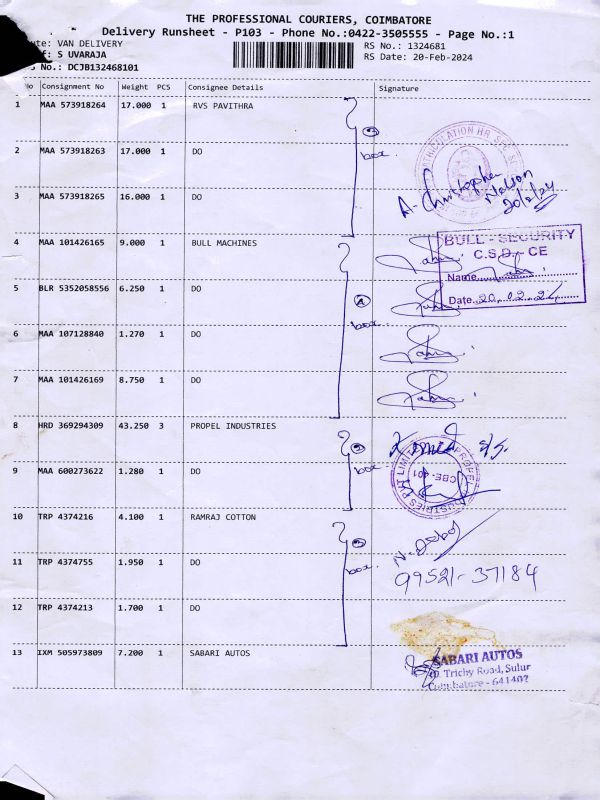 THE PROFESSIONAL COURIERS, COIMBATORE
Delivery Runsheet - P103 - Phone No.:0422-3505555 - Page No.:1
ute: VAN DELIVERY
RS No.: 1324681
f: S UVARAJA
RS Date: 20-Feb-2024
S No.: DCJB132468101
No Consignment No Weight PCS Consignee Details Signature
1 MAA 573918264 17.000 1 RVS PAVITHRA
2 MAA 573918263 17.000 1 DO
box.
3 MAA 573918265 16.000 1 DO
A. Christopher Nelson
20/2/24
4 MAA 101426165 9.000 1 BULL MACHINES
BULL - SECURITY
C.S.D. - CE
Name
Date 20.02.24
5 BLR 5352058556 6.250 1 DO
box.
6 MAA 107128840 1.270 1 DO
7 MAA 101426169 8.750 1 DO
8 HRD 369294309 43.250 3 PROPEL INDUSTRIES
9 MAA 600273622 1.280 1 DO
box
CBE-401
10 TRP 4374216 4.100 1 RAMRAJ COTTON
11 TRP 4374755 1.950 1 DO
box.
99521-37184
12 TRP 4374213 1.700 1 DO
13 IXM 505973809 7.200 1 SABARI AUTOS
SABARI AUTOS
Trichy Road, Sulur
Coimbatore - 641402